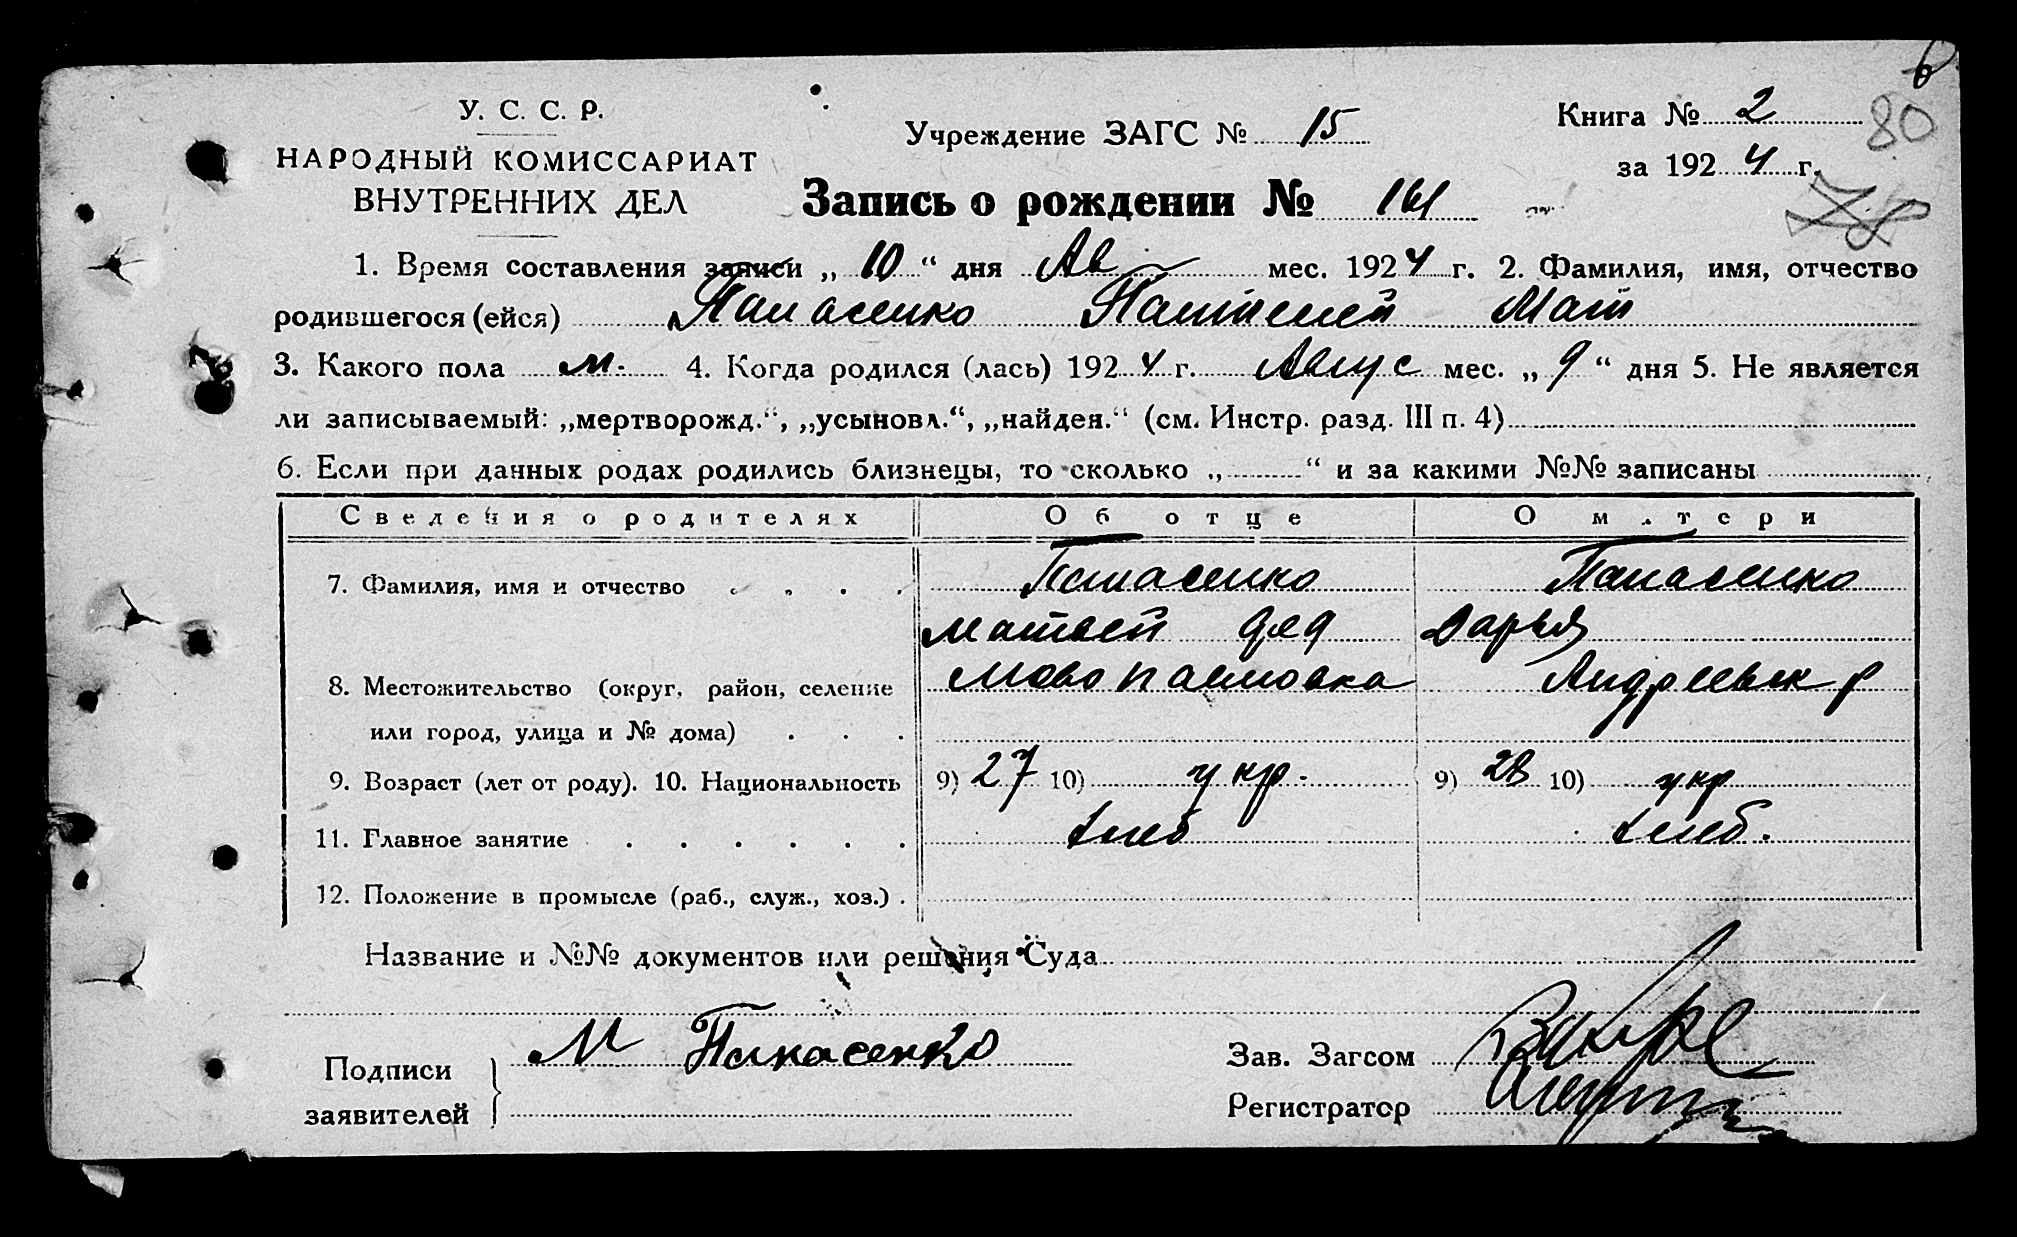 У. С. С. Р.
НАРОДНЫЙ КОМИССАРИАТ
ВНУТРЕННИХ ДЕЛ
Учреждение ЗАГС № 15
Книга № 2
80
за 1924 г.
Запись о рождении № 161
1. Время составления записи „10“ дня Ав мес. 1924 г. 2. Фамилия, имя, отчество
родившегося (ейся) Панасенко Пантелей Мат
3. Какого пола м. 4. Когда родился (лась) 1924 г. Авгус мес. „9“ дня 5. Не является
ли записываемый: „мертворожд.“, „усыновл.“, „найден.“ (см. Инстр. разд. III п. 4)
6. Если при данных родах родились близнецы, то сколько „ “ и за какими №№ записаны
Сведения о родителях Об отце О матери
7. Фамилия, имя и отчество Панасенко Панасенко
Матвей Дарья
8. Местожительство (округ, район, селение Андреевн
или город, улица и № дома)
9. Возраст (лет от роду). 10. Национальность 9) 27 10) укр. 9) 28 10) укр
11. Главное занятие хлеб хлеб.
12. Положение в промысле (раб., служ., хоз.)
Название и №№ документов или решения Суда
Подписи
заявителей
М Панасенко
Зав. Загсом
Регистратор